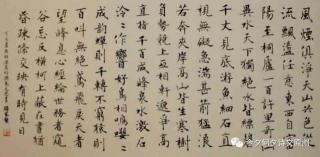 風煙俱淨天山共色從
流飄蕩任意東西自富
陽至桐廬一百許里奇山
異水天下獨絕水皆縹碧
千丈見底游魚細石直
視無礙急湍甚箭猛浪
若奔夾岸高山皆生寒樹
負勢競上互相軒邈爭高
直指千百成峰泉水激石
泠泠作響好鳥相鳴嚶嚶
成韻蟬則千轉不窮猿則
百叫無絕鳶飛戾天者
望峰息心經綸世務者窺
谷忘反橫柯上蔽在晝猶
昏疏條交映有時見日